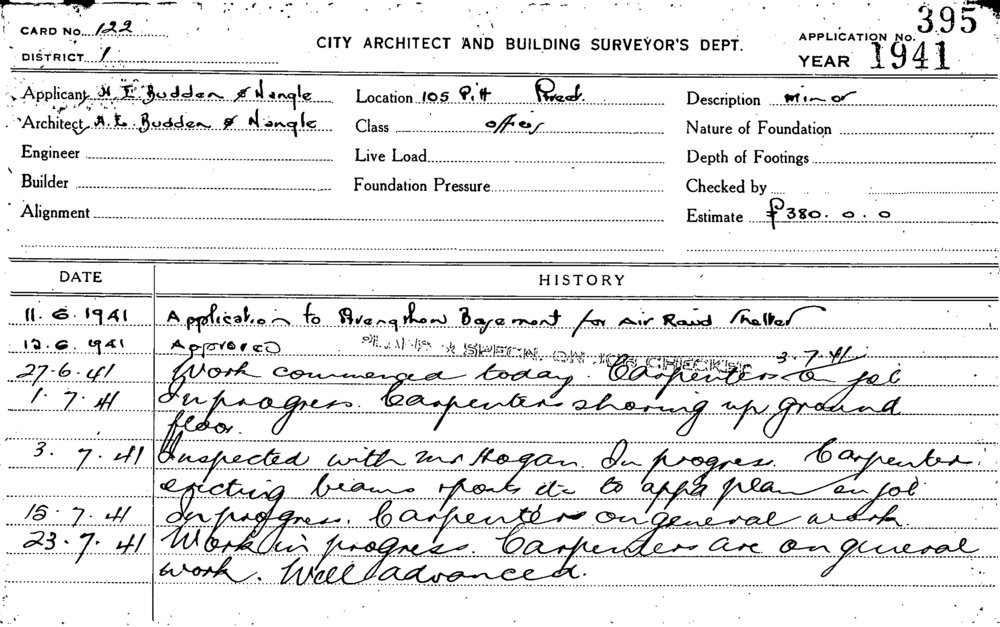 CARD No. 122
DISTRICT 1
CITY ARCHITECT AND BUILDING SURVEYOR'S DEPT.
APPLICATION No. 395
YEAR 1941
Applicant H. E. Budden & Nangle
Location 105 Pitt Street.
Description minor
Architect H. E. Budden & Nangle
Class offices
Nature of Foundation
Engineer
Live Load
Depth of Footings
Builder
Foundation Pressure
Checked by
Alignment
Estimate £380. 0. 0
DATE
HISTORY
11. 6. 1941 Application to Strengthen Basement for Air Raid Shelter
12. 6. 1941 Approved PLANS & SPECN. ON JOB CHECKED 3.7.41
27.6.41 Work commenced today. Carpenters on job
1.7.41 In progress. Carpenters shoring up ground
floor.
3. 7.41 Inspected with Mr Hogan. In progress. Carpenters
erecting beams posts etc to appd plan on job
15.7.41 In progress. Carpenters on general work
23.7.41 Work in progress. Carpenters are on general
work. Well advanced.